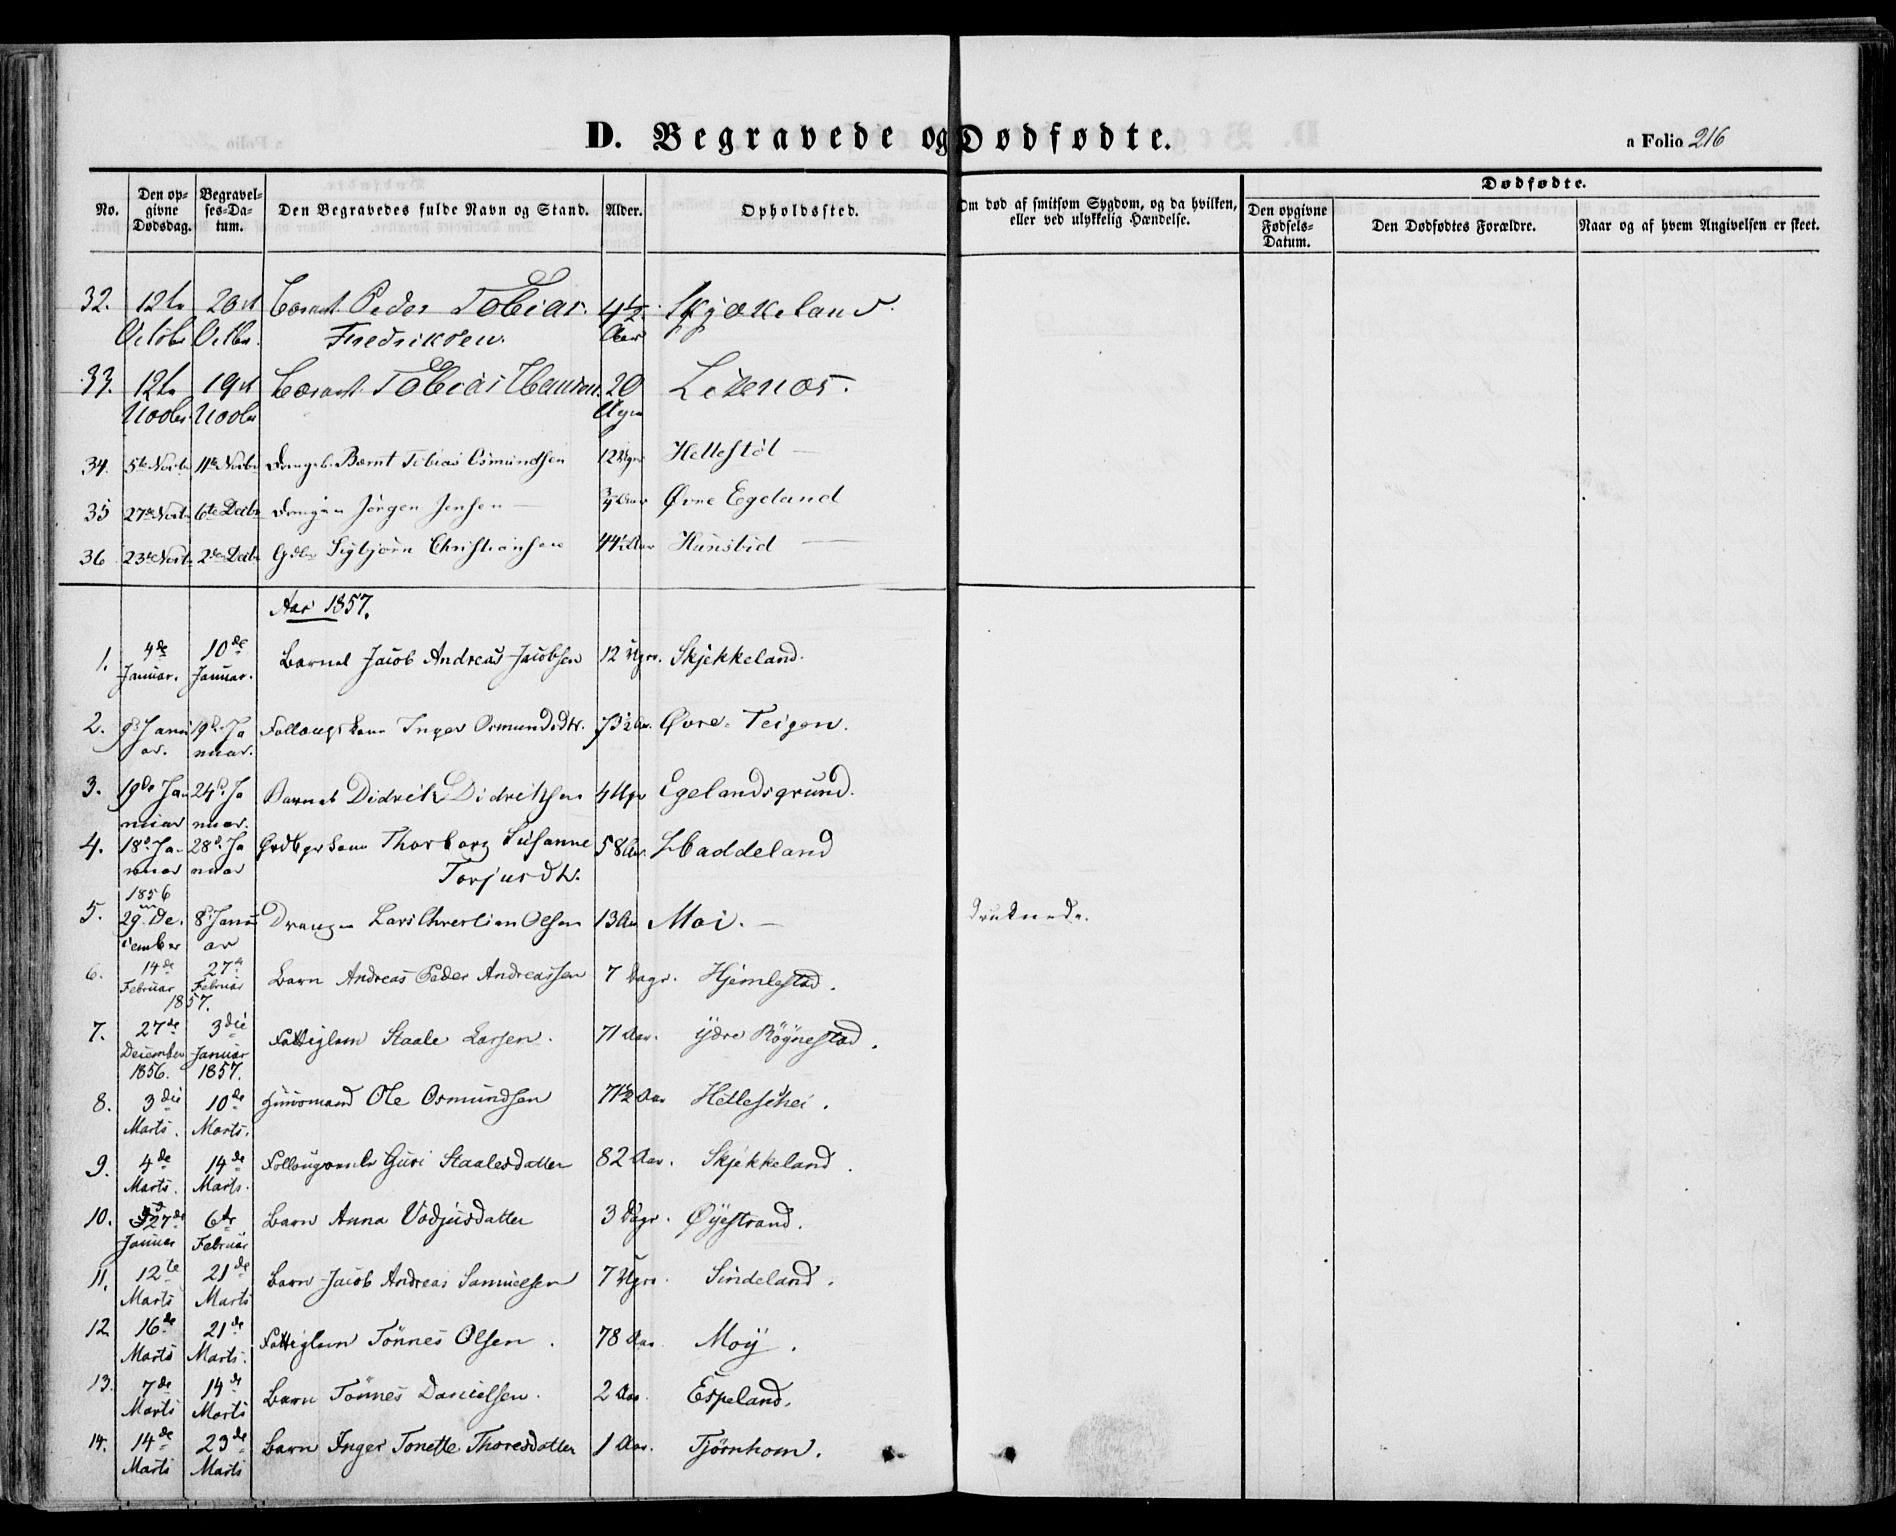 D. Begravede og Dødfødte.
a Folio 216
No.
Den opgivne Dødsdag.
Begravelses-Datum.
Den Begravedes fulde Navn og Stand.
Alder.
Opholdssted.
Om død af smitsom Sygdom, og da hvilken, eller ved ulykkelig Hændelse.
Dødfødte.
Den opgivne Fødsels-Datum.
Den Dødfødtes Forældre.
Naar og af hvem Angivelsen er skeet.
32. 12te 20de Peder Tobias 4½ Skjækeland.
Octobr Octbr. Fredriksen. Aar
33. 12te 19de Tobias Hansen. 20
34. 5te Novbr 11te Novbr Bernt Tobias Osmundsen 12 Uger Hellestøl
35 27de Novbr 6te Decbr Drengen Jørgen Jensen ¾ Aar Øvre Egeland
36 23de Novbr 2den Decbr Sigbjørn Christiansen 44½ Aar Hunsbid
Aar 1857.
1. 4de 10de Barnet Jacob Andreas Jacobsen 12 Ugr. Skjekkeland.
Januar. Januar.
2. 9de Janu 19de Ja Inger Osmundsdtr. 73½ Aar. Øvre-Teigen.
ar. nuar.
3. 19de Ja 24de Ja Barnet Didrik Didriksen 4 Ugr Egelandsgrund.
nuar nuar.
4. 18de Ja 28de Ja Thorborg Susanne 58 Aar. Haddeland
nuar nuar Torjusdtr.
1856
5. 29. De. 8de Janu Drengen Lars Christian Olsen 13 Aar Moi. druknede.
cember ar
6. 14de 27de Barn Andreas Peder Andreassen 7 Dagr. Hjemlestad.
Februar Februar
1857.
7. 27de 3die Fattiglem Staale Larsen. 71 Aar. ydre Røynestad.
December Januar
1856. 1857.
8. 3die 10de Huusmand Ole Osmundsen 71½ Aar
Marts. Marts.
9. 4de 14de Guri Staalesdatter 82 Aar. Skjekkeland.
Marts. Marts.
10. 27de 6te Barn Anna Vodjusdatter 3 Dagr. Øyestrand.
Januar Februar
11. 12te 21de Barn Jacob Andreas Samuelsen 7 Ugr. Sindeland.
Marts Marts
12 16de 21de Fattiglem Tönnes Olsen. 78 Aar. Moÿ.
Marts Marts.
13. 7de 14de Barn Tönnes Danielsen. 2 Aar. Espeland.
Marts Marts
14. 14de 23de Barn Inger Tonette Thoresdatter 1 Aar. Tjørnhom.
Marts Marts